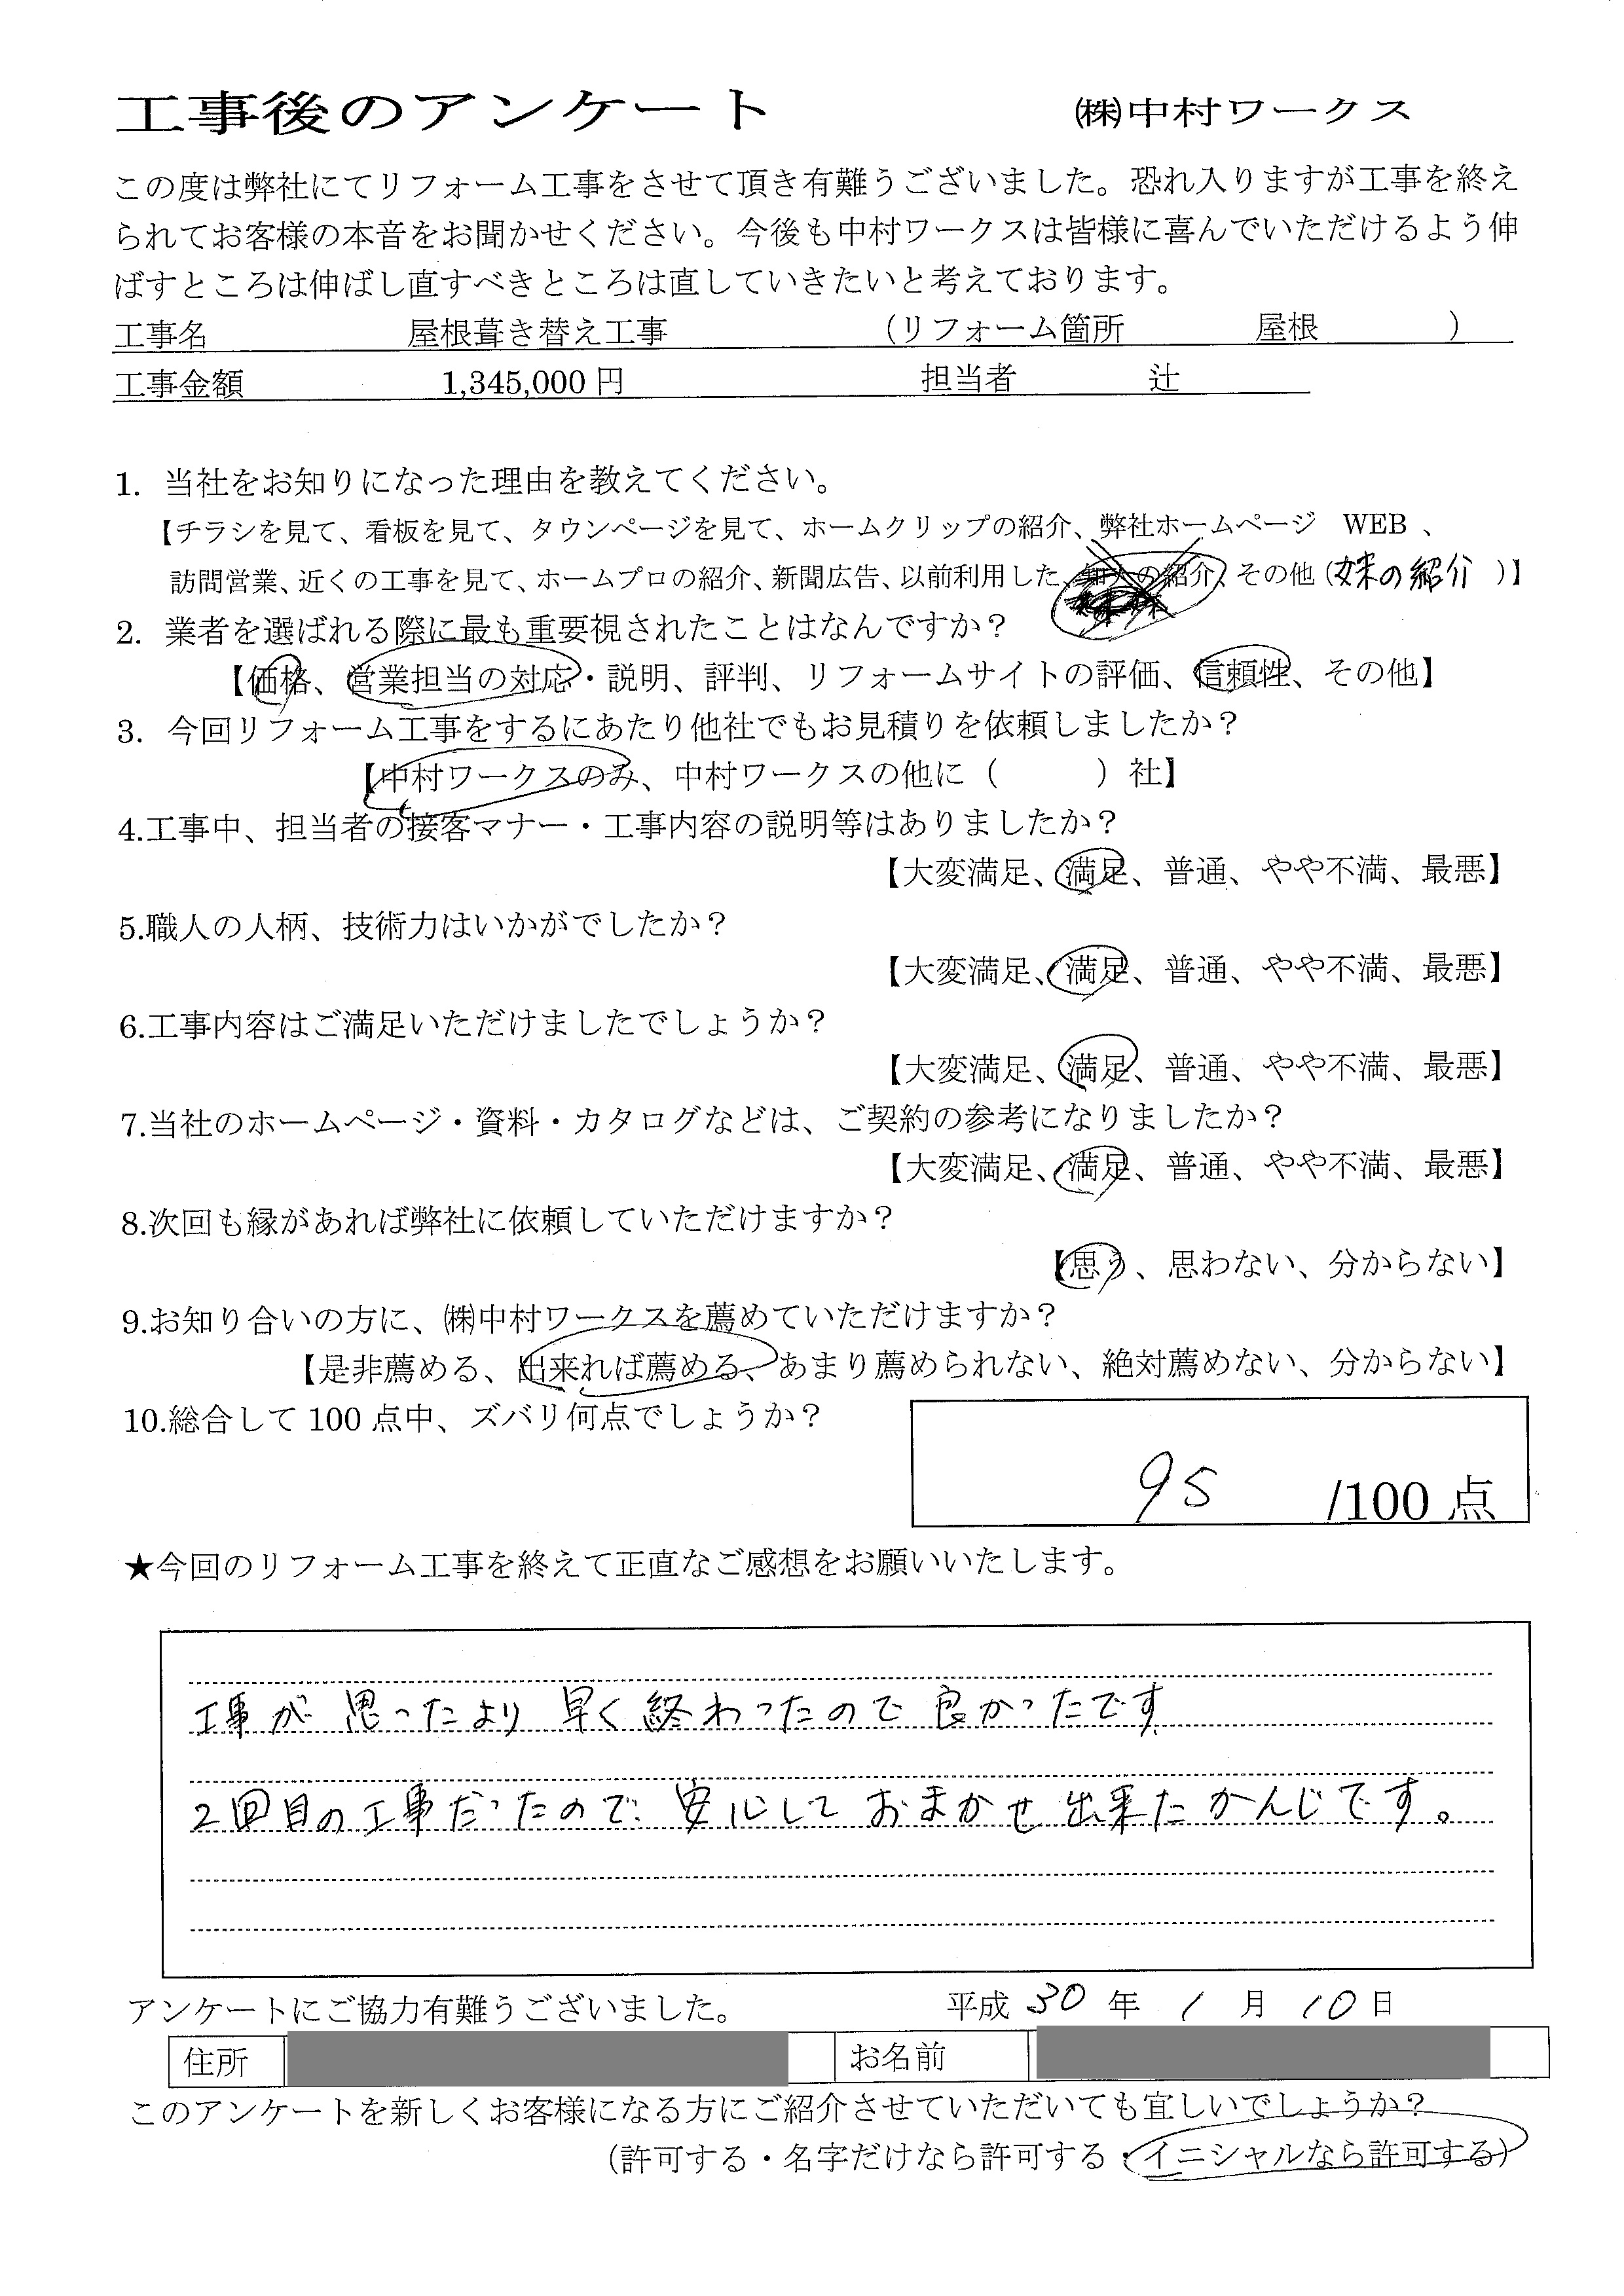 工事後のアンケート ㈱中村ワークス
この度は弊社にてリフォーム工事をさせて頂き有難うございました。恐れ入りますが工事を終え
られてお客様の本音をお聞かせください。今後も中村ワークスは皆様に喜んでいただけるよう伸
ばすところは伸ばし直すべきところは直していきたいと考えております。
工事名 屋根葺き替え工事 （リフォーム箇所 屋根 ）
工事金額 1,345,000 円 担当者 辻
1. 当社をお知りになった理由を教えてください。
【チラシを見て、看板を見て、タウンページを見て、ホームクリップの紹介、弊社ホームページ WEB 、
訪問営業、近くの工事を見て、ホームプロの紹介、新聞広告、以前利用した、知人の紹介、その他（妹の紹介 ）】
2. 業者を選ばれる際に最も重要視されたことはなんですか？
【価格、営業担当の対応・説明、評判、リフォームサイトの評価、信頼性、その他】
3. 今回リフォーム工事をするにあたり他社でもお見積りを依頼しましたか？
【中村ワークスのみ、中村ワークスの他に（ ）社】
4.工事中、担当者の接客マナー・工事内容の説明等はありましたか？
【大変満足、満足、普通、やや不満、最悪】
5.職人の人柄、技術力はいかがでしたか？
【大変満足、満足、普通、やや不満、最悪】
6.工事内容はご満足いただけましたでしょうか？
【大変満足、満足、普通、やや不満、最悪】
7.当社のホームページ・資料・カタログなどは、ご契約の参考になりましたか？
【大変満足、満足、普通、やや不満、最悪】
8.次回も縁があれば弊社に依頼していただけますか？
【思う、思わない、分からない】
9.お知り合いの方に、㈱中村ワークスを薦めていただけますか？
【是非薦める、出来れば薦める、あまり薦められない、絶対薦めない、分からない】
10.総合して 100 点中、ズバリ何点でしょうか？
95 /100 点
★今回のリフォーム工事を終えて正直なご感想をお願いいたします。
工事が思ったより早く終わったので良かったです
2回目の工事だったので、安心しておまかせ出来たかんじです。
アンケートにご協力有難うございました。 平成 30 年 1 月 10 日
住所 お名前
このアンケートを新しくお客様になる方にご紹介させていただいても宜しいでしょうか？
（許可する・名字だけなら許可する・イニシャルなら許可する）